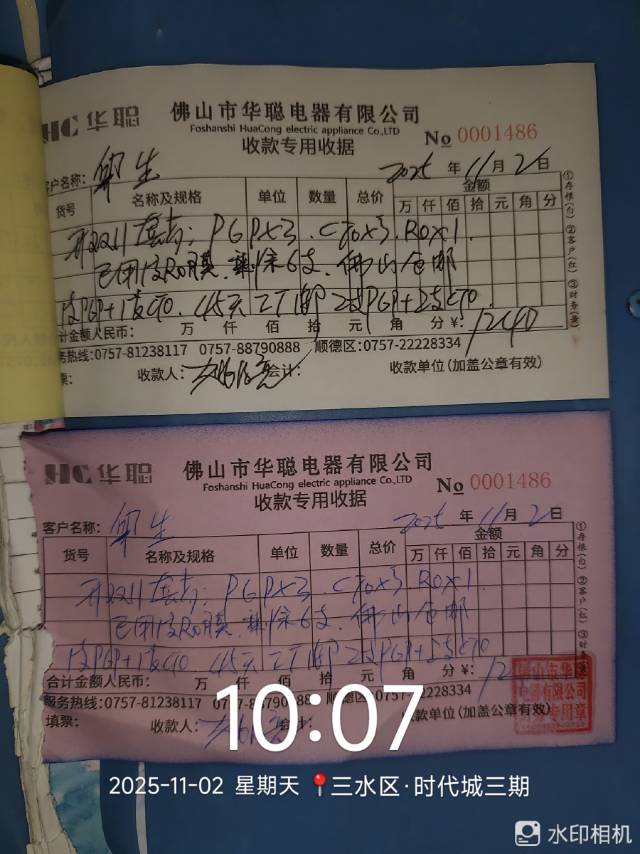 HC 华聪
佛山市华聪电器有限公司
Foshanshi HuaCong electric appliance Co.,LTD
收款专用收据
No 0001486
客户名称: 生
2025 年 11 月 2 日
货号 名称及规格 单位 数量 总价 金额
万 仟 佰 拾 元 角 分
开双11套卡: PGPX3. C10X3. ROX1
已用1支RO膜 余6支. 佛山仓邮
1支PGP+1支C10. 45天
2支PGP+2支C10
计金额人民币: 万 仟 佰 拾 元 角 分 ¥: 1240
务热线:0757-81238117 0757-88790888 顺德区:0757-22228334
票: 收款人: 会计: 收款单位(加盖公章有效)
①存根(白) ②客户(红) ③财务(黄)
HC 华聪
佛山市华聪电器有限公司
Foshanshi HuaCong electric appliance Co.,LTD
收款专用收据
No 0001486
客户名称: 生
2025 年 11 月 2 日
货号 名称及规格 单位 数量 总价 金额
万 仟 佰 拾 元 角 分
开双11套卡: PGPX3. C10X3. ROX1
已用1支RO膜 余6支. 佛山仓邮
1支PGP+1支C10. 45天
2支PGP+2支C10
合计金额人民币: 万 仟 佰 拾 元 角 分 ¥:
服务热线:0757-81238117 顺德区:0757-22228334
填票: 收款人: 会计: 收款单位(加盖公章有效)
①存根(白) ②客户(红) ③财务(黄)
佛山市华聪
电器有限公司
专用章
10:07
2025-11-02 星期天 三水区·时代城三期
水印相机